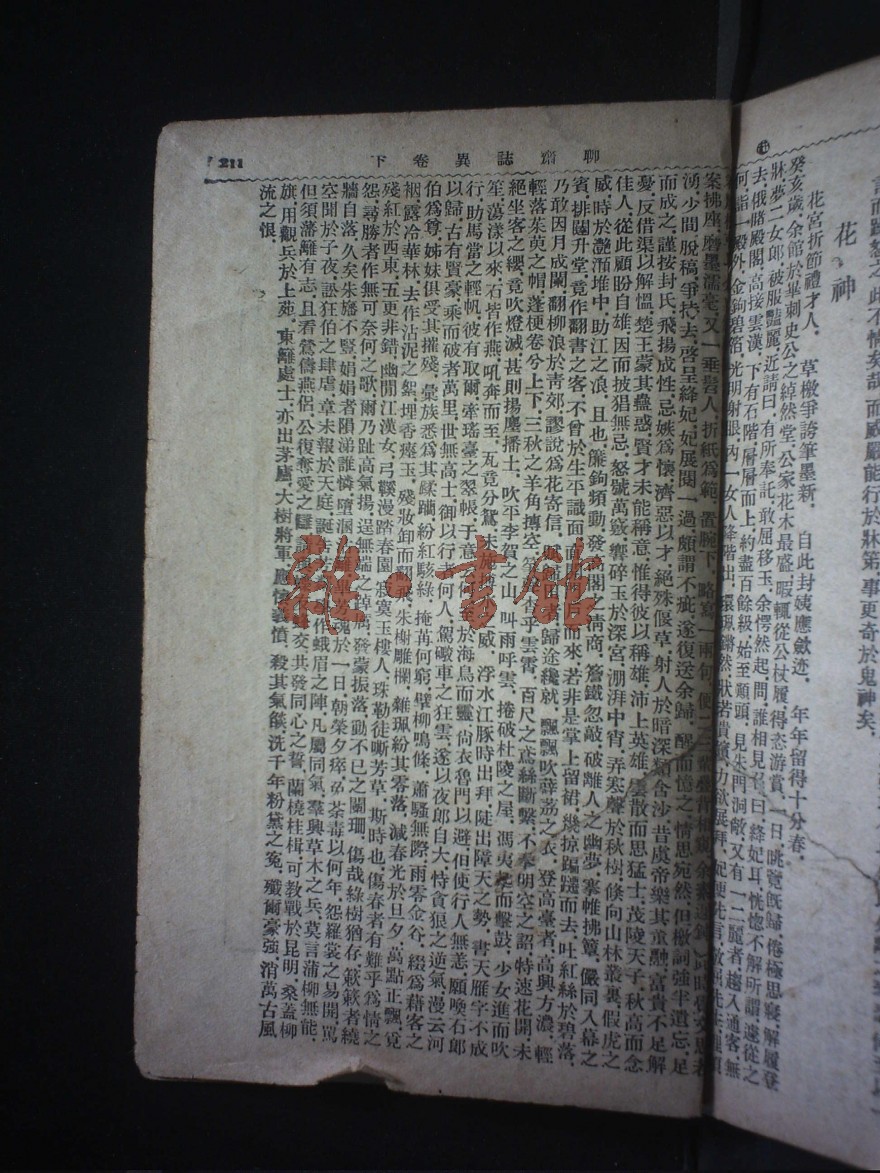 聊齋誌異卷下
211
而威嚴能行於牀第,事更奇於鬼神矣.
花神
花宮折節禮才人. 草檄爭誇筆墨新. 自此封姨應歛迹. 年年留得十分春.
癸亥歲,余館於畢刺史公之綽然堂,公家花木最盛,暇輒從公杖履,得恣游賞,一日,眺覽旣歸,倦極思寢,解履登
牀,夢二女郎,被服豔麗,近請曰,有所奉託,敢屈移玉,余愕然起,問,誰相見召,曰,絳妃耳,恍惚不解所謂,遽從之
去,俄睹殿閣,高接雲漢,下有石階,層層而上,約盡百餘級,始至顚頭,見朱門洞敞,又有一二麗者,趨入通客,無
何,詣一殿外,金鉤碧箔,光明射眼,內一女人降階出,環珮鏘然,狀若貴嬪,方欲展拜,妃便先言,敬屈先生,理須
案拂座,磨墨濡毫,又一垂髫人,折紙爲範,置腕下,略寫一兩句,便二三輩疊背相窺,余素遲鈍,此時覺文思若
湧,少間,脫稿,爭持去,啓呈絳妃,妃展閱一過,頗謂不疵,遂復送余歸,醒而憶之,情思宛然,但檄詞強半遺忘,足
而成之,謹按封氏,飛揚成性,忌嫉爲懷,濟惡以才,絕殊偃草,射人於暗,深類含沙,昔虞帝樂其薰融,富貴不足解
憂,反借渠以解慍,楚王蒙其蠱惑,賢才未能稱意,惟得彼以稱雄,沛上英雄,雲散而思猛士,茂陵天子,秋高而念
佳人,從此顧盼自雄,因而披猖無忌,怒號萬竅,響碎玉於深宮,澎湃中宵,弄寒聲於秋樹,倏向山林叢裏,假虎之
威,時於灧澦堆中,助江之浪,且也,簾鉤頻動,發高閣之清商,簷鐵忽敲,破離人之幽夢,搴帷拂簟,儼同入幕之
賓,排闥升堂,竟作翻書之客,不曾於生平識面,而來,若非是掌上留裙,幾掠蹁躚而去,吐紅絲於碧落,
乃敢因月成闌,翻柳浪於靑郊,謬說爲花寄信,歸途纔就,飄飄吹薜荔之衣,登高臺者,高興方濃,輕
輕落茱萸之帽,蓬梗卷兮上下,三秋之羊角摶空,乎雲霄,百尺之鳶絲斷繫,不奉明空之詔,特速花開,未
絕坐客之纓,竟吹燈滅,甚則揚塵播土,吹平李賀之山,叫雨呼雲,捲破杜陵之屋,馮夷起而擊鼓,少女進而吹
笙,蕩漾以來,石皆作燕,吼奔而至,瓦竟分鴛,未施摶之威,浮水江豚時出拜,陡出障天之勢,書天雁字不成
行,助馬當之輕帆,彼有取爾,牽瑤臺之翠帳,于意云何,至於海鳥而靈,尙衣魯門以避,但使行人無恙,願喚石郎
以歸,古有賢豪,乘而破者萬里,世無高士,御以行者幾何人,駕礮車之狂雲,遂以夜郎自大,恃貪狠之逆氣,漫云河
伯爲尊,姊妹俱受其摧殘,彙族悉爲其蹂躪,紛紅駭綠,掩苒何窮,擘柳鳴條,蕭騷無際,雨零金谷,綴爲藉客之
裀,露冷華林,去作沾泥之絮,埋香瘞玉,殘妝卸而翻飛,朱榭雕欄,雜珮紛其零落,減春光於旦夕,萬點正飄,覓
殘紅於西東,五更非錯,幽閒江漢女,弓鞵漫踏春園,寂寞玉樓人,珠勒徒嘶芳草,斯時也,傷春者有難乎爲情之
怨,尋勝者作無可奈何之歌,爾乃趾高氣揚,逞無端之,發蒙振落,動不已之闌珊,傷哉綠樹猶存,蔌蔌者繞
牆自落,久矣朱旛不豎,娟娟者隕涕誰憐,墮溷魂於一日,朝榮夕瘁,荼毒以何年,怨羅裳之易開,罵
空聞於子夜,訟狂伯之肆虐,章未報於天庭,誕告作蛾眉之陣,凡屬同氣,羣興草木之兵,莫言蒲柳無能,
但須藩籬有志,且看鶯儔燕侶,公復奪愛之交,共發同心之誓,蘭橈桂楫,可教戰於昆明,桑蓋柳
旗,用觀兵於上苑,東籬處士,亦出茅廬,大樹將軍,應懷義憤,殺其氣燄,洗千年粉黛之冤,殲爾豪強,消萬古風
流之恨.
雜·書館